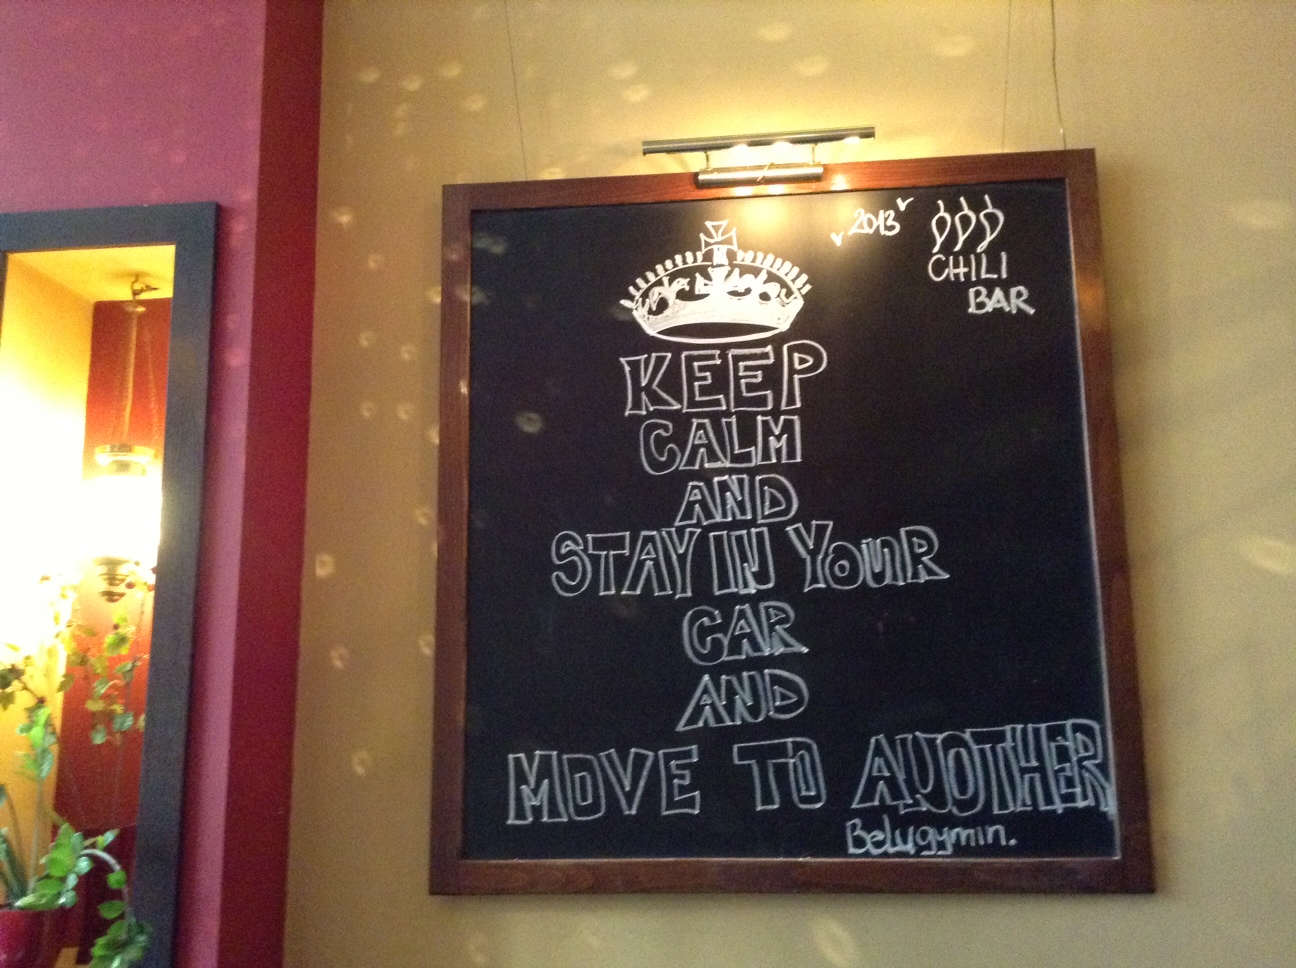 2013
CHILI
BAR
KEEP
CALM
AND
STAY IN YOUR
CAR
AND
MOVE TO ANOTHER
Belügymin.